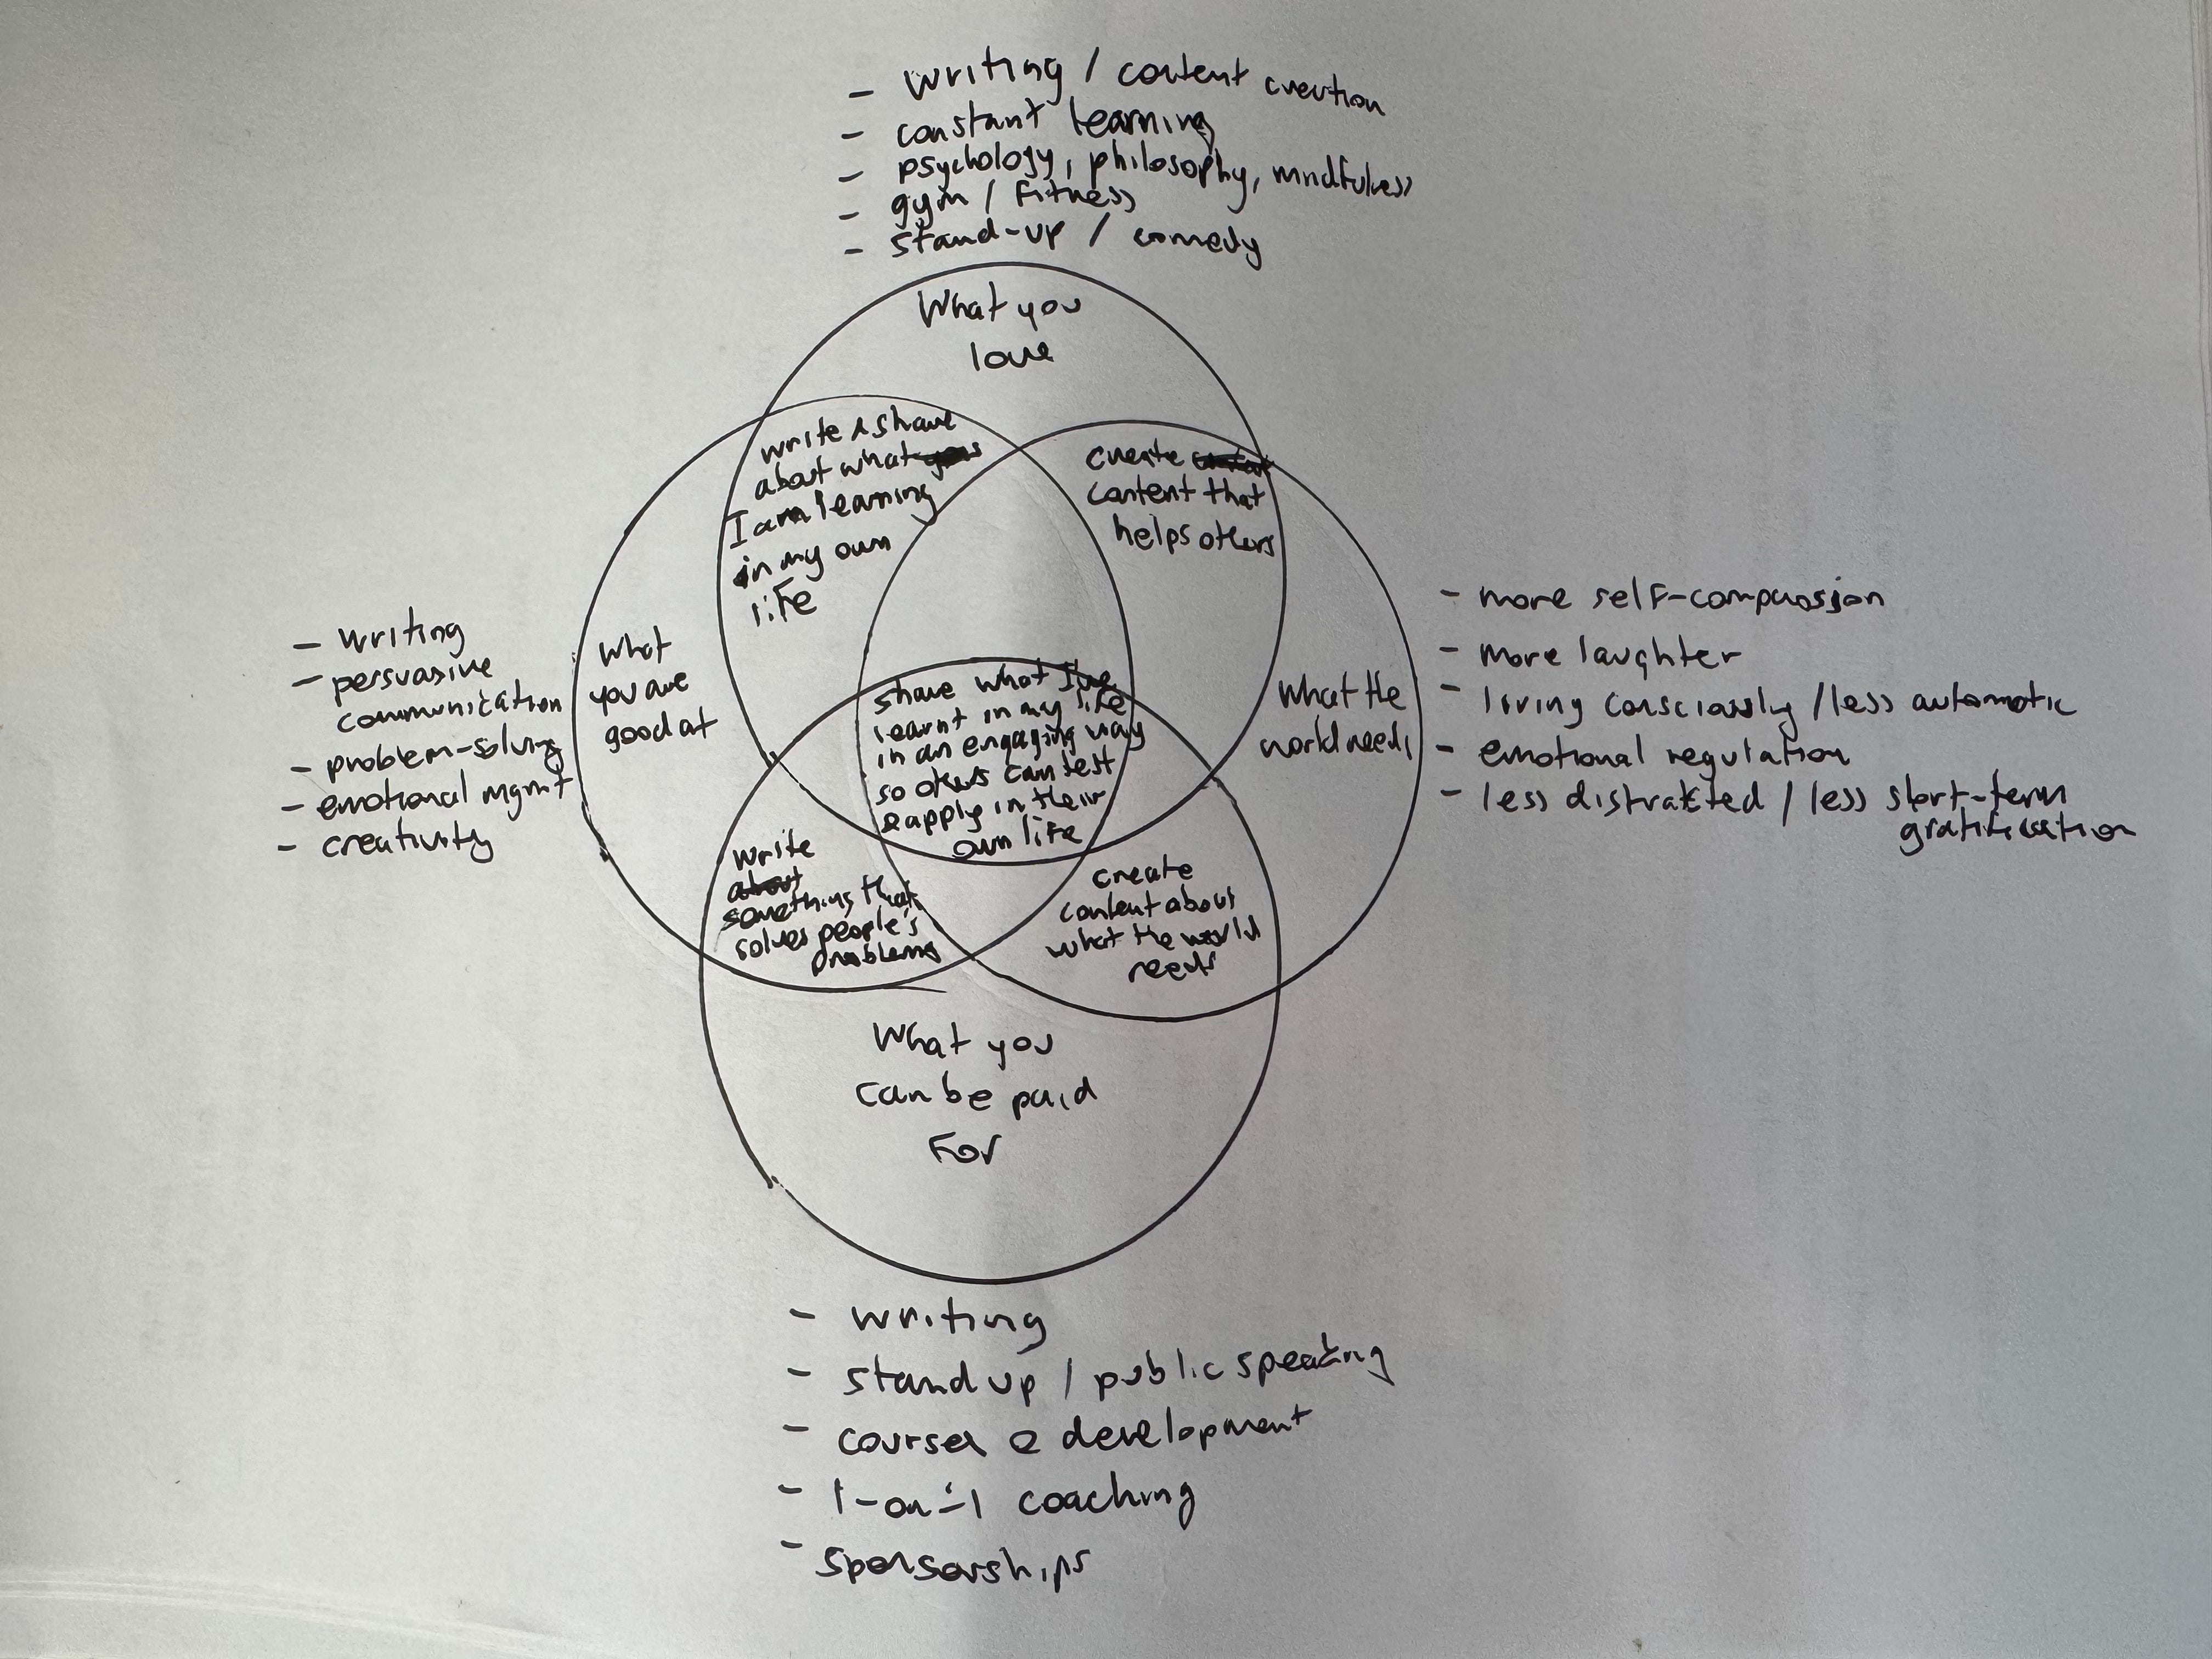 - writing / content creation
- constant learning
- psychology, philosophy, mindfulness
- gym / fitness
- stand-up / comedy
What you
love
write & share
about what
I am learning
in my own
life
create
content that
helps others
- writing
- persuasive
communication
- problem-solving
- emotional mgmt
- creativity
What
you are
good at
share what I've
learnt in my life
in an engaging way
so others can test
& apply in their
own life
What the
world needs
- more self-compassion
- more laughter
- living consciously / less automatic
- emotional regulation
- less distrakted / less short-term
gratification
write
about
something that
solves people's
problems
create
content about
what the world
needs
What you
can be paid
For
- writing
- stand up / public speaking
- courses & development
- 1-on-1 coaching
- sponsorships